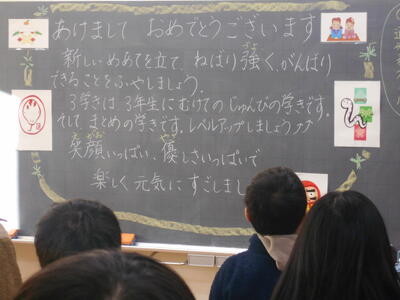 あけまして おめでとうございます
新しいめあてを立て、ねばり強く、がんばり
できることをふやしましょう。
3学きは3年生にむけてのじゅんびの学きです。
そして まとめの学きです。レベルアップしましょう
笑顔いっぱい、優しさいっぱいで
楽しく元気にすごしまし